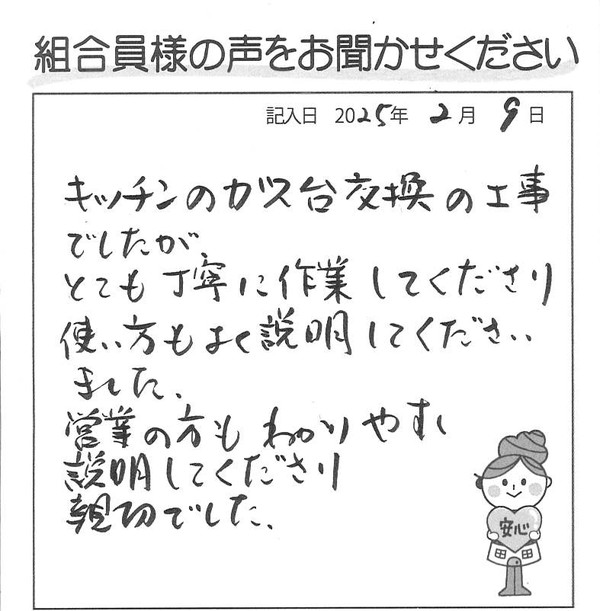 組合員様の声をお聞かせください
記入日 2025年 2月 9日
キッチンのガス台交換の工事
でしたが、
とても丁寧に作業してくださり
使い方もよく説明してください
ました。
営業の方もわかりやすく
説明してくださり
親切でした。
安心